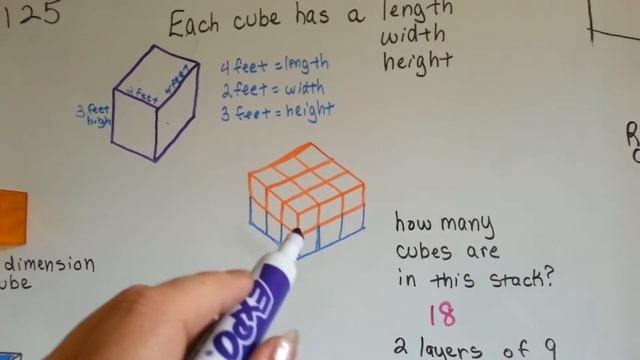 125
Each cube has a length
width
height
4 feet = length
2 feet = width
3 feet = height
2 feet
4 feet
3 feet
high
how many
cubes are
in this stack?
18
2 layers of 9
dimension
EXPO